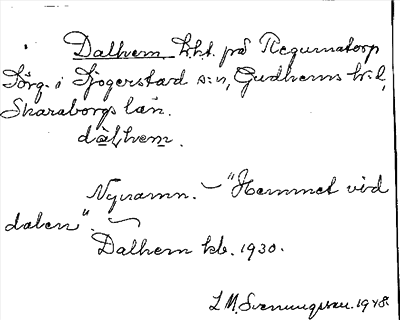 Dalhem lht. på Regumatorp
Sörg. i Sjogerstad s:n, Gudhems h:d,
Skaraborgs län.
dàlhem.
Nynamn. – "Hemmet vid
dalen".
Dalhem kb. 1930.
L M. Svenungsson. 1948.